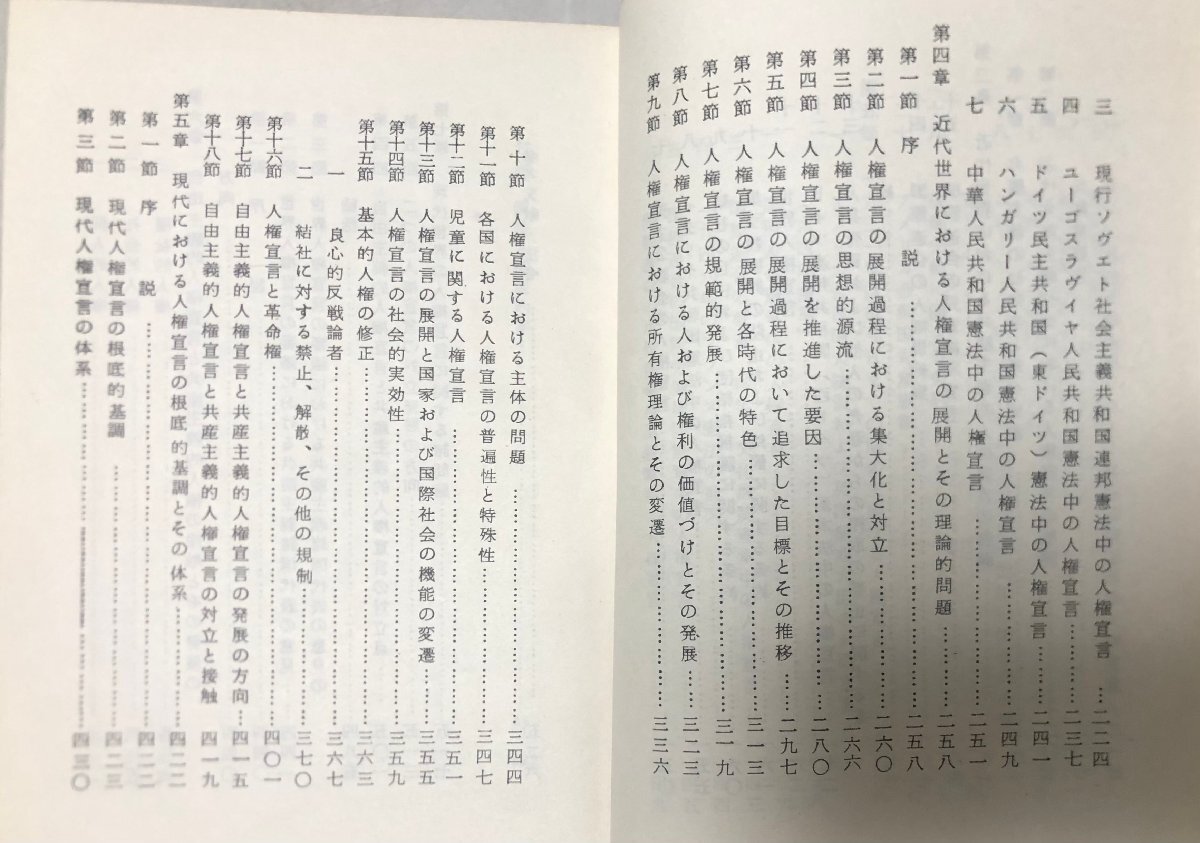 三 現行ソヴェト社会主義共和国連邦憲法中の人権宣言…二二四
四 ユーゴスラヴィヤ人民共和国憲法中の人権宣言…………二三七
五 ドイツ民主共和国(東ドイツ)憲法中の人権宣言…………二四一
六 ハンガリー人民共和国憲法中の人権宣言…………二四九
七 中華人民共和国憲法中の人権宣言…………二五一
第四章 近代世界における人権宣言の展開とその理論的問題…………二五八
第一節 序説…………二五八
第二節 人権宣言の展開過程における集大化と対立…………二六〇
第三節 人権宣言の思想的源流…………二六六
第四節 人権宣言の展開を推進した要因…………二八〇
第五節 人権宣言の展開過程において追求した目標とその推移……二九七
第六節 人権宣言の展開と各時代の特色…………三一三
第七節 人権宣言の規範的発展…………三一九
第八節 人権宣言における人および権利の価値づけとその発展……三二三
第九節 人権宣言における所有権理論とその変遷…………三三六
第十節 人権宣言における主体の問題…………三四四
第十一節 各国における人権宣言の普遍性と特殊性…………三四七
第十二節 児童に関する人権宣言…………三五一
第十三節 人権宣言の展開と国家および国際社会の機能の変遷……三五五
第十四節 人権宣言の社会的実効性…………三五九
第十五節 基本的人権の修正…………三六三
一 良心的反戦論者…………三六七
二 結社に対する禁止、解散、その他の規制…………三七〇
第十六節 人権宣言と革命権…………四〇一
第十七節 自由主義的人権宣言と共産主義的人権宣言の発展の方向…四一五
第十八節 自由主義的人権宣言と共産主義的人権宣言の対立と接触 四一九
第五章 現代における人権宣言の根底的基調とその体系…………四二二
第一節 序説…………四二二
第二節 現代人権宣言の根底的基調…………四二三
第三節 現代人権宣言の体系…………四三〇